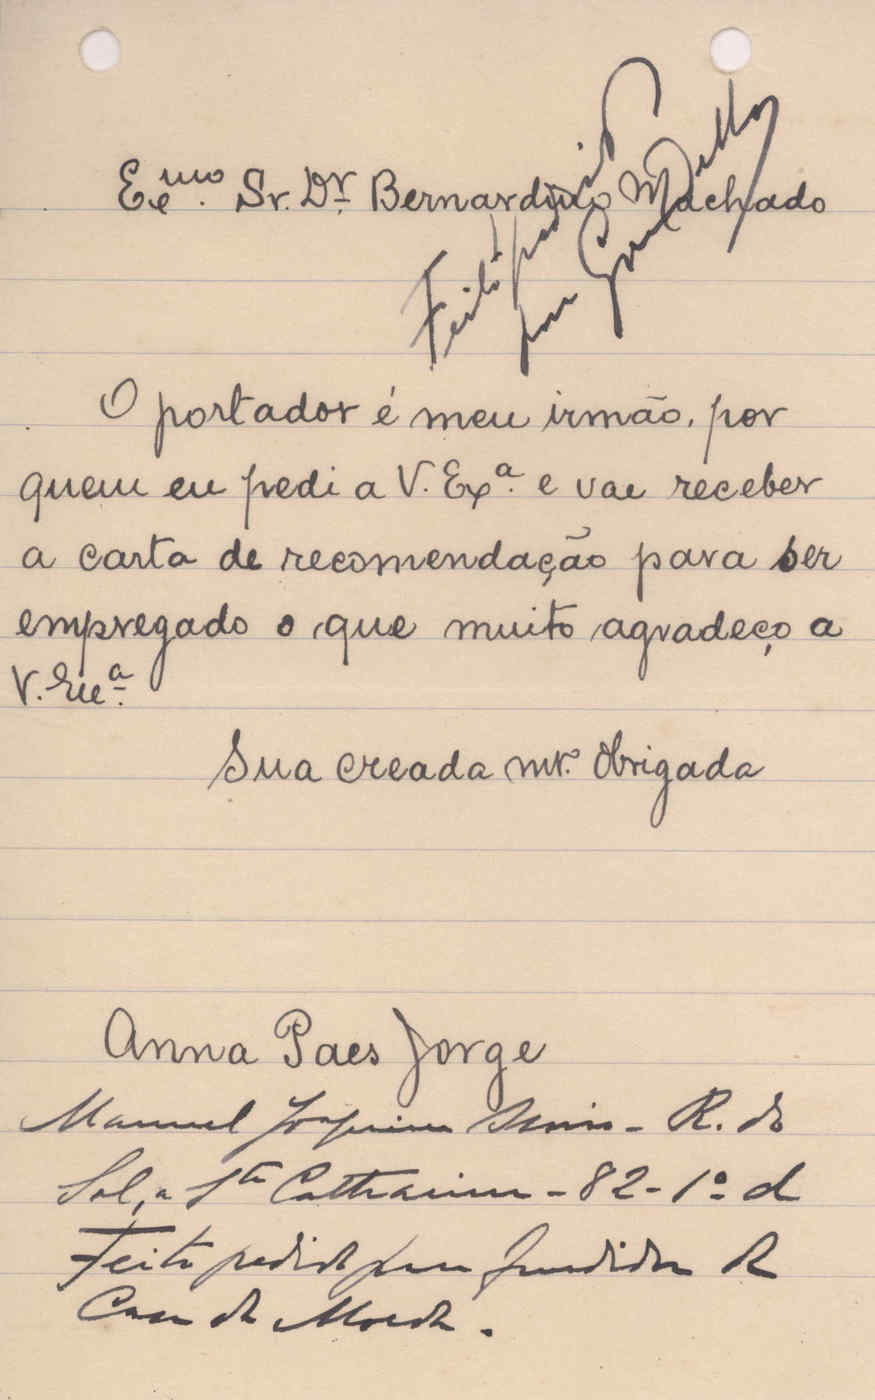 Exmo. Sr. Dr. Bernardino Machado
Feito pedido
para
O portador é meu irmão, por
quem eu pedi a V. Exa. e vae receber
a carta de recomendação para ser
empregado o que muito agradeço a
V. Exa.
Sua creada mto. Obrigada
Anna Paes Jorge
Manuel Joaquim - R. do
Sol, a Sta Catharina - 82 - 1º d
Feito pedido para fundidor da
Casa da Moeda.